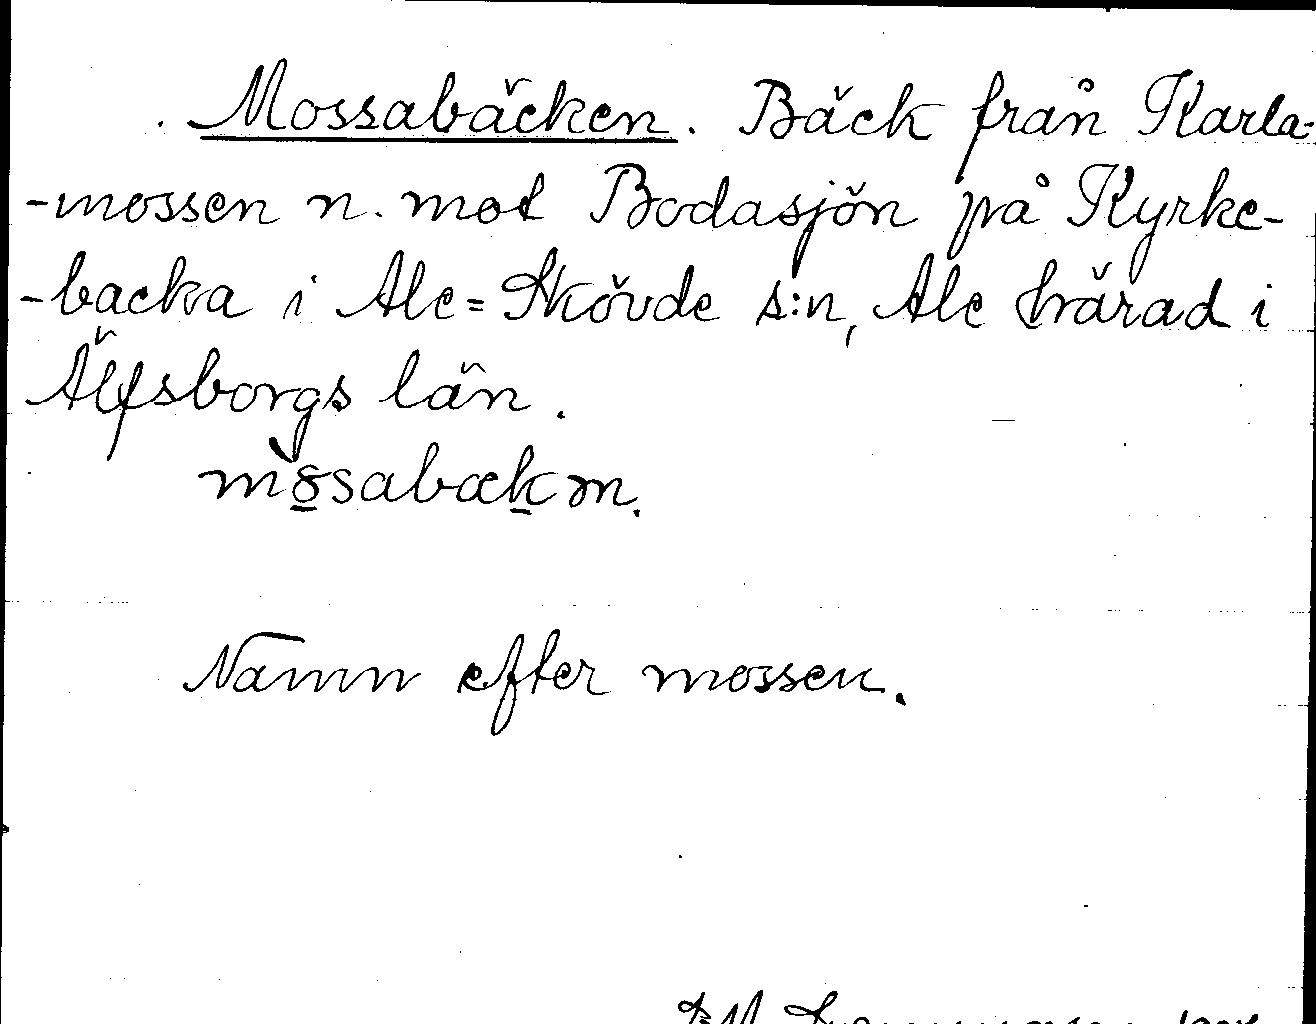 Mossabäcken. Bäck från Karla-
-mossen n. mot Bodasjön på Kyrke-
-backa i Ale=Skövde s:n, Ale härad i
Älfsborgs län.
Namn efter mossen.